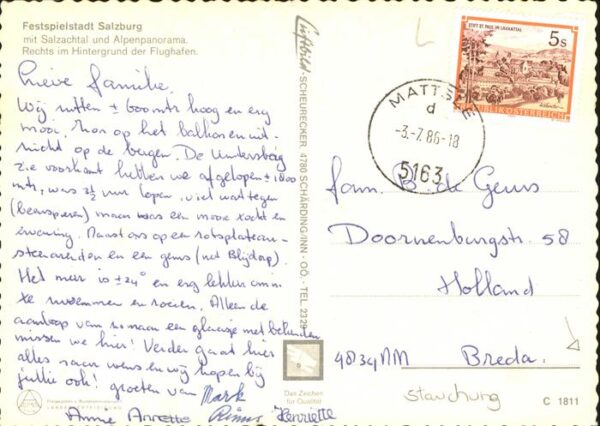 Festspielstadt Salzburg
mit Salzachtal und Alpenpanorama.
Rechts im Hintergrund der Flughafen.
Lieve familie,
Wij zitten ± hoog en erg
mooi, op het balkon uit-
zicht op de bergen. De Untersberg
zie voorkant hebben we afgelopen ± 1800
mtr, was 2½ uur lopen. viel wat tegen
maar was een mooie tocht en
ervaring. Naast ons op een rotsplateau
steenarenden en een gems (net Blijdorp).
Het meer is ± 24° en erg lekker om in
te zwemmen en roeien. Alleen de
aanloop van zomaar een glaasje met bekenden
missen we hier! Verder gaat hier
alles naar wens en wij hopen bij
jullie ook! groeten van Mark
Annie Annette Rinus Henriette
Luftbild SCHEURECKER, 4780 SCHÄRDING/INN - OÖ. - TEL. 2329
Das Zeichen
für Qualität
STIFT ST. PAUL IM LAVANTTAL
5s
REPUBLIK ÖSTERREICH
MATTSEE
d
-3.-7.86-18
5163
Fam. B. de Gems
Doornenburgstr. 58
Holland
4834NM Breda.
stauchung
C 1811